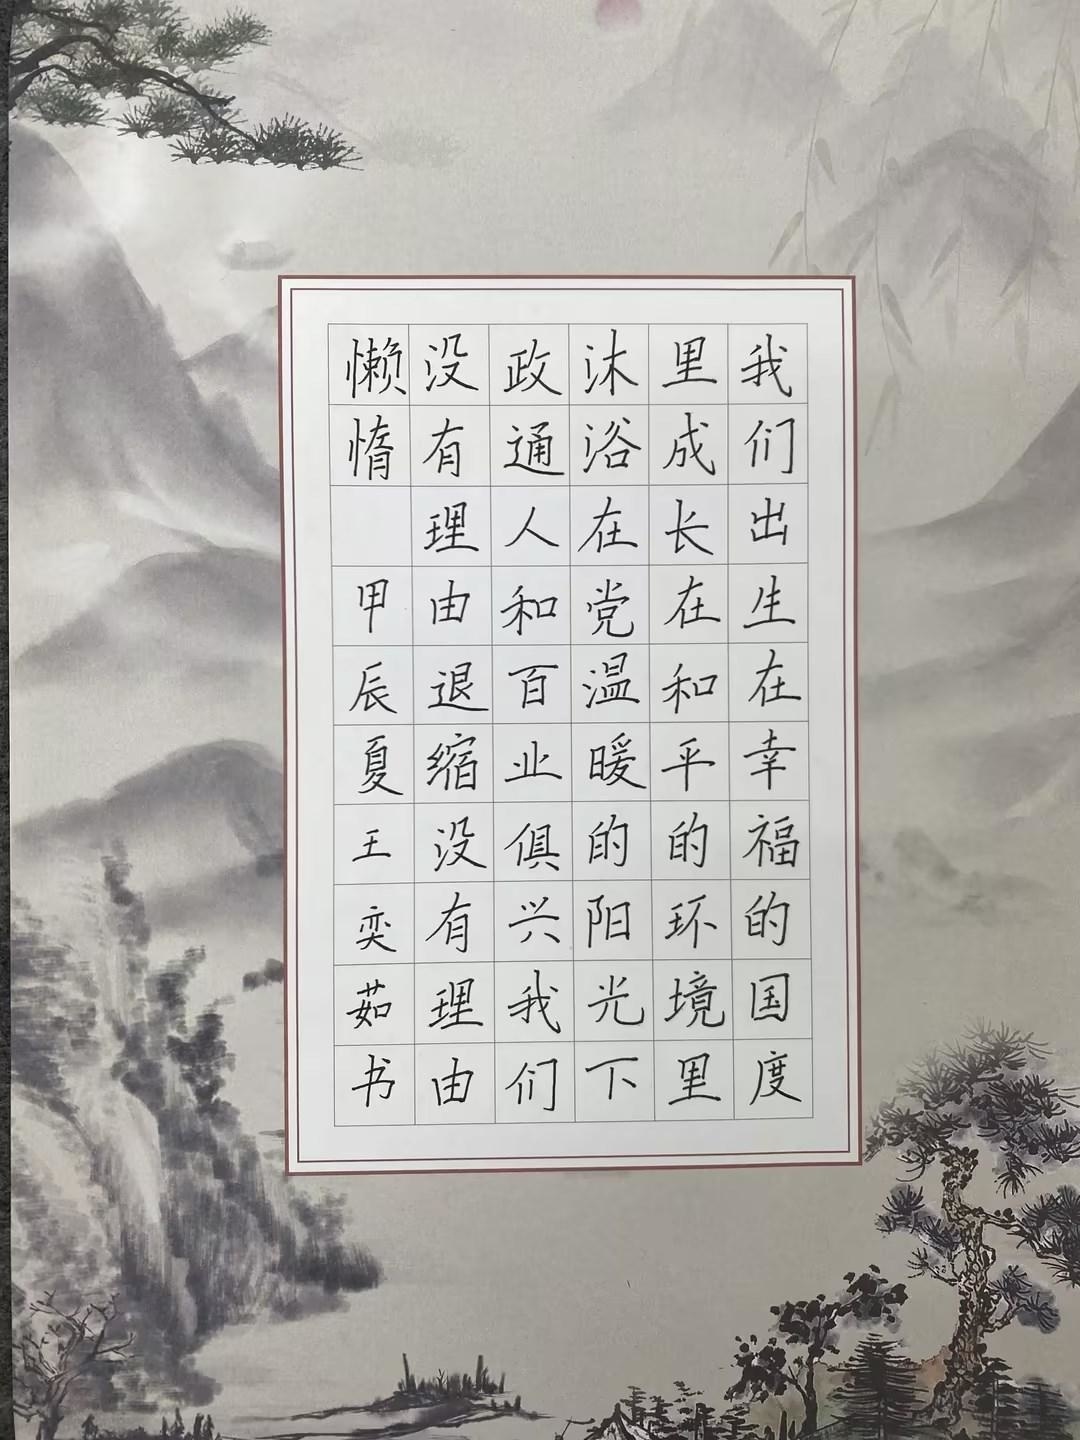 我们出生在幸福的国度
里成长在和平的环境里
沐浴在党温暖的阳光下
政通人和百业俱兴我们
没有理由退缩没有理由
懒惰 甲辰夏王奕茹书